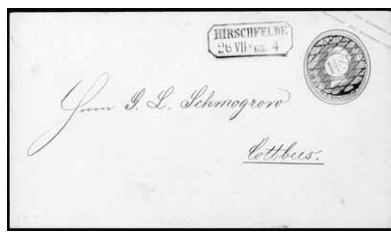 HIRSCHFELDE
26 VII 65. 4
Herrn G. L. Schmogrow
Cottbus.